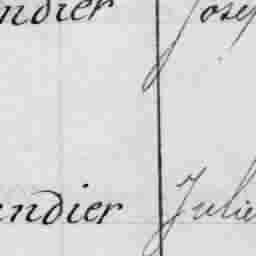 ndier Josep
endier Julie